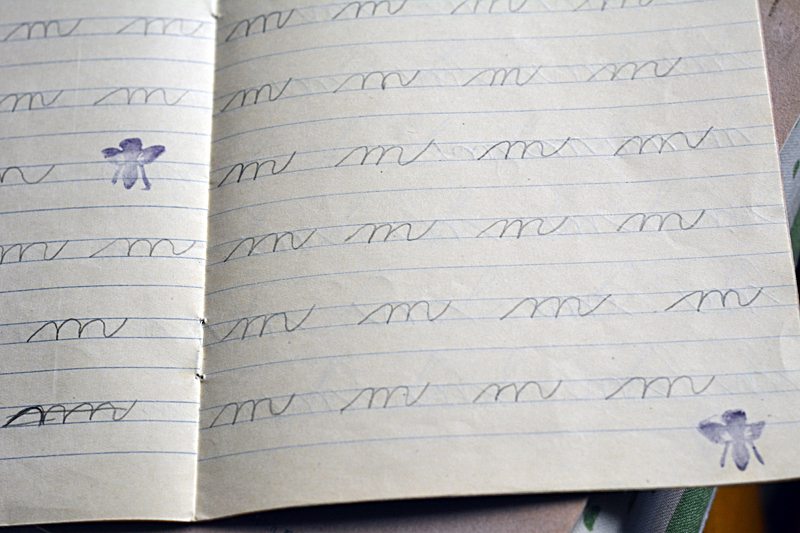 m m
m m
m m
m
m m m m
m m m m
m m m m
m m m m
m m m m
m m m m